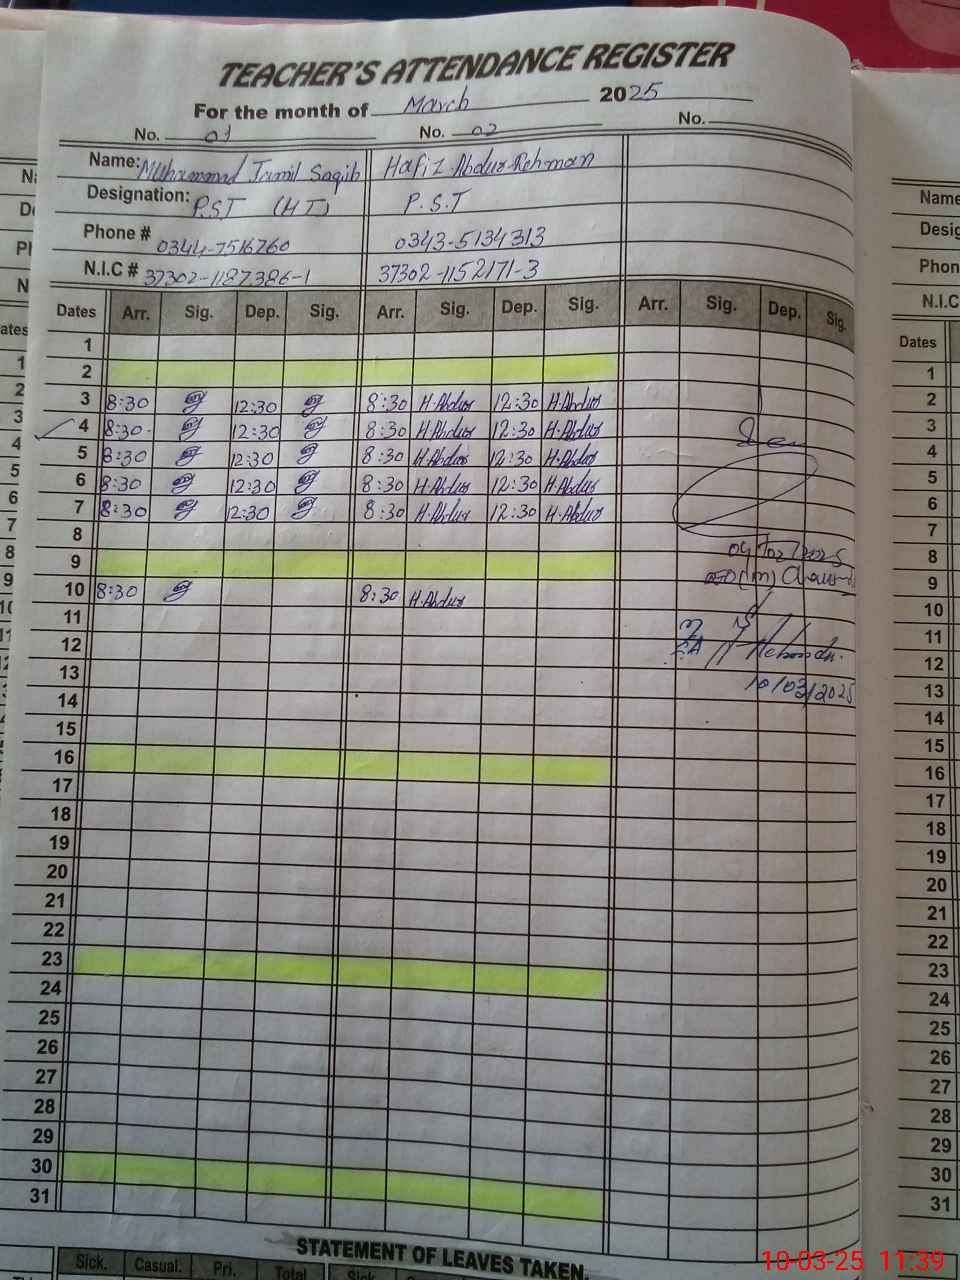 TEACHER'S ATTENDANCE REGISTER
For the month of March 2025
No. 01 No. 02 No.
Name: Muhammad Jamil Saqib Hafiz Abdur Rehman
Designation: P.S.T (H T) P.S.T
Phone # 0344-7516760 0343-5134313
N.I.C # 37302-1187386-1 37302-1152171-3
Dates Arr. Sig. Dep. Sig. Arr. Sig. Dep. Sig. Arr. Sig. Dep. Sig.
1
2
3 8:30 12:30 8:30 H.Abdur 12:30 H.Abdur
4 8:30 12:30 8:30 H.Abdur 12:30 H.Abdur
5 8:30 12:30 8:30 H.Abdur 12:30 H.Abdur
6 8:30 12:30 8:30 H.Abdur 12:30 H.Abdur
7 8:30 12:30 8:30 H.Abdur 12:30 H.Abdur
8
9
10 8:30 8:30 H.Abdur
11
12
13 10/03/2025
14
15
16
17
18
19
20
21
22
23
24
25
26
27
28
29
30
31
STATEMENT OF LEAVES TAKEN.
Sick. Casual. Pri. Total Sick.
Name
Desig
Phon
N.I.C
Dates
1
2
3
4
5
6
7
8
9
10
11
12
13
14
15
16
17
18
19
20
21
22
23
24
25
26
27
28
29
30
31
10-03-25 11:39